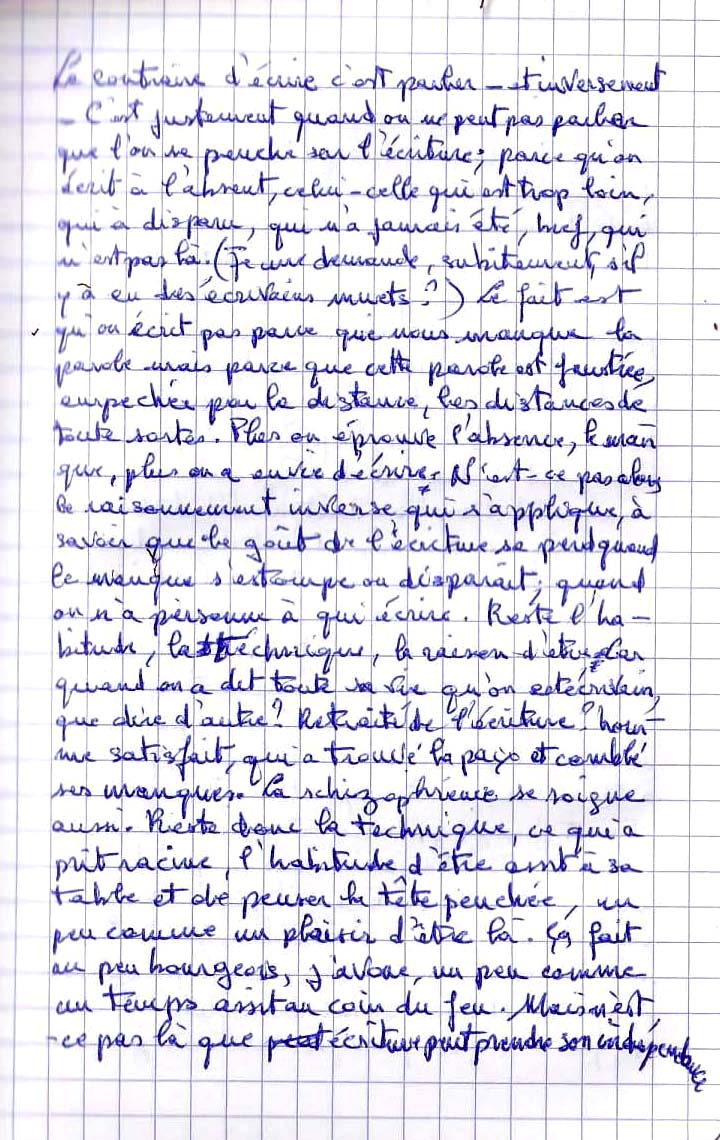 Le contraire d'écrire c'est parler – et inversement
– C'est justement quand on ne peut pas parler
que l'on se penche sur l'écriture; parce qu'on
écrit à l'absent, celui-celle qui est trop loin,
qui à disparu, qui n'a jamais été, bref, qui
n'est pas là. (Je me demande, subitement, s'il
y à eu des écrivains muets?) Le fait est
qu'on écrit pas parce que nous manque la
parole mais parce que cette parole est frustrée,
empechée par la distance, les distances de
toute sortes. Plus on éprouve l'absence, le man
que, plus on a envie d'écrire. N'est-ce pas alors
le raisonnement inverse qui s'applique, à
savoir que le goût de l'écriture se perd quand
le manque s'estompe ou disparaît; quand
on n'a personne à qui écrire. Reste l'ha-
bitude, la technique, la raison d'être. Car
quand on a dit toute sa vie qu'on est écrivain,
que dire d'autre? Retraité de l'écriture? hom-
me satisfait, qui a trouvé la et comblé
ses manques. La schizophrénie se soigne
aussi. Reste donc la technique, ce qui a
prit racine, l'habitude d'être assit à sa
table et de penser la tête penchée, un
peu comme un plaisir d'être là. Ça fait
un peu bourgeois, j'avoue, un peu comme
un temps assit au coin du feu. Mais n'est,
-ce pas là que écriture peut prendre son indépendance